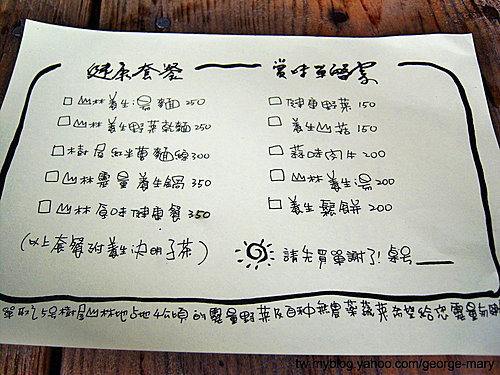 健康套餐
□ 山林養生湯麵 250
□ 山林養生野菜乾麵 250
□ 樹屋紅米東麵線 300
□ 山林靈量養生鍋 350
□ 山林食味健康餐 350
(以上套餐附養生決明子茶)
賞味
□ 健康野菜 150
□ 養生山菇 150
□ 蒜味肉片 200
□ 山林養生湯 200
□ 養生鬆餅 200
請先買單謝了! 桌号
樹屋山林地占地4公頃的靈量野菜及自种無農藥蔬菜希望給您靈量
tw.myblog.yahoo.com/george-mary